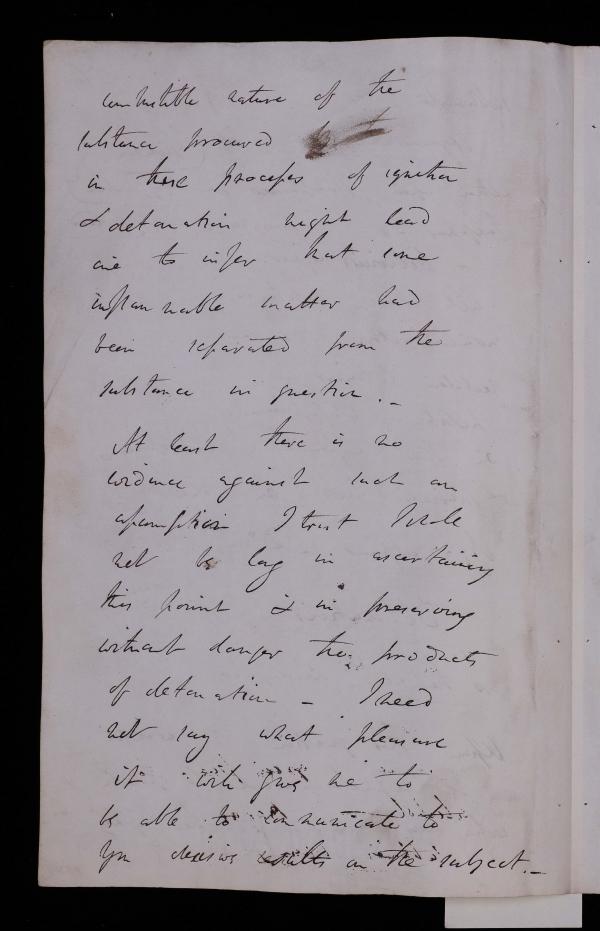 combustible nature of the
substance procured
in these processes of ignition
& detonation might lead
one to infer that some
inflammable matter had
been separated from the
substance in question. _
At least there is no
evidence against such an
assumption I trust I shall
not be long in ascertaining
this point & in preserving
without danger the products
of detonation _ I need
not say what pleasure
it will give me to
be able to communicate to
you decisive results on the subject. _